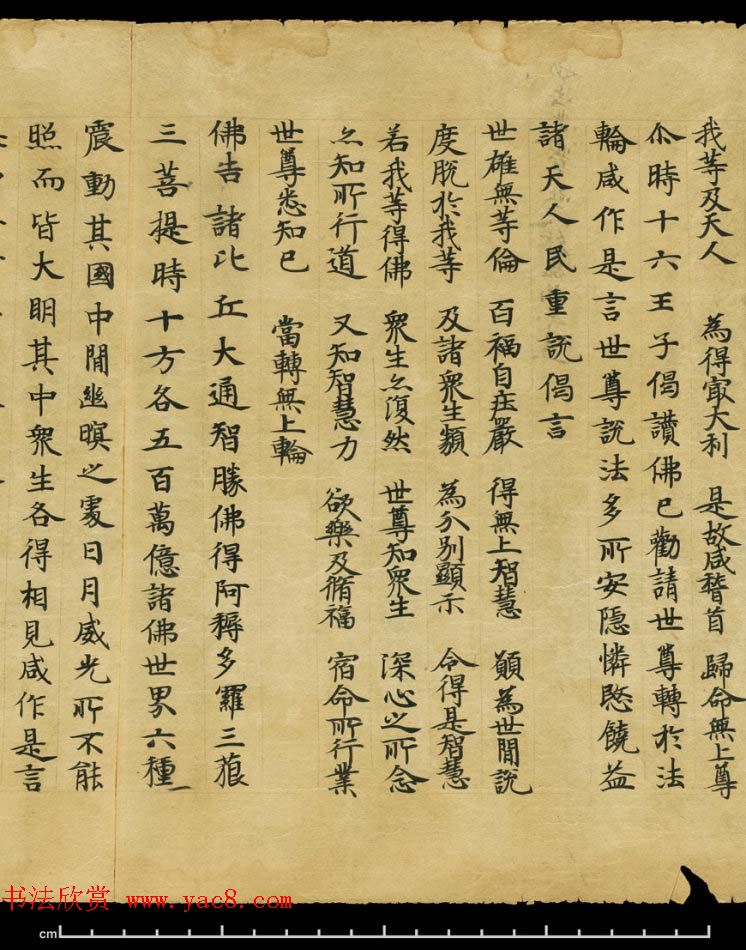 我等及天人 為得㝡大利 是故咸稽首 歸命無上尊
尒時十六王子偈讚佛已勸請世尊轉於法
輪咸作是言世尊說法多所安隱憐愍饒益
諸天人民重說偈言
世雄無等倫 百福自庄嚴 得無上智慧 願為世間說
度脫於我等 及諸衆生類 為分別顯示 令得是智慧
若我等得佛 衆生亦復然 世尊知衆生 深心之所念
亦知所行道 又知智慧力 欲樂及脩福 宿命所行業
世尊悉知已 當轉無上輪
佛告諸比丘大通智勝佛得阿耨多羅三藐
三菩提時十方各五百萬億諸佛世界六種
震動其國中間幽暝之處日月威光所不能
照而皆大明其中衆生各得相見咸作是言
书法欣赏 www.yac8.com
cm